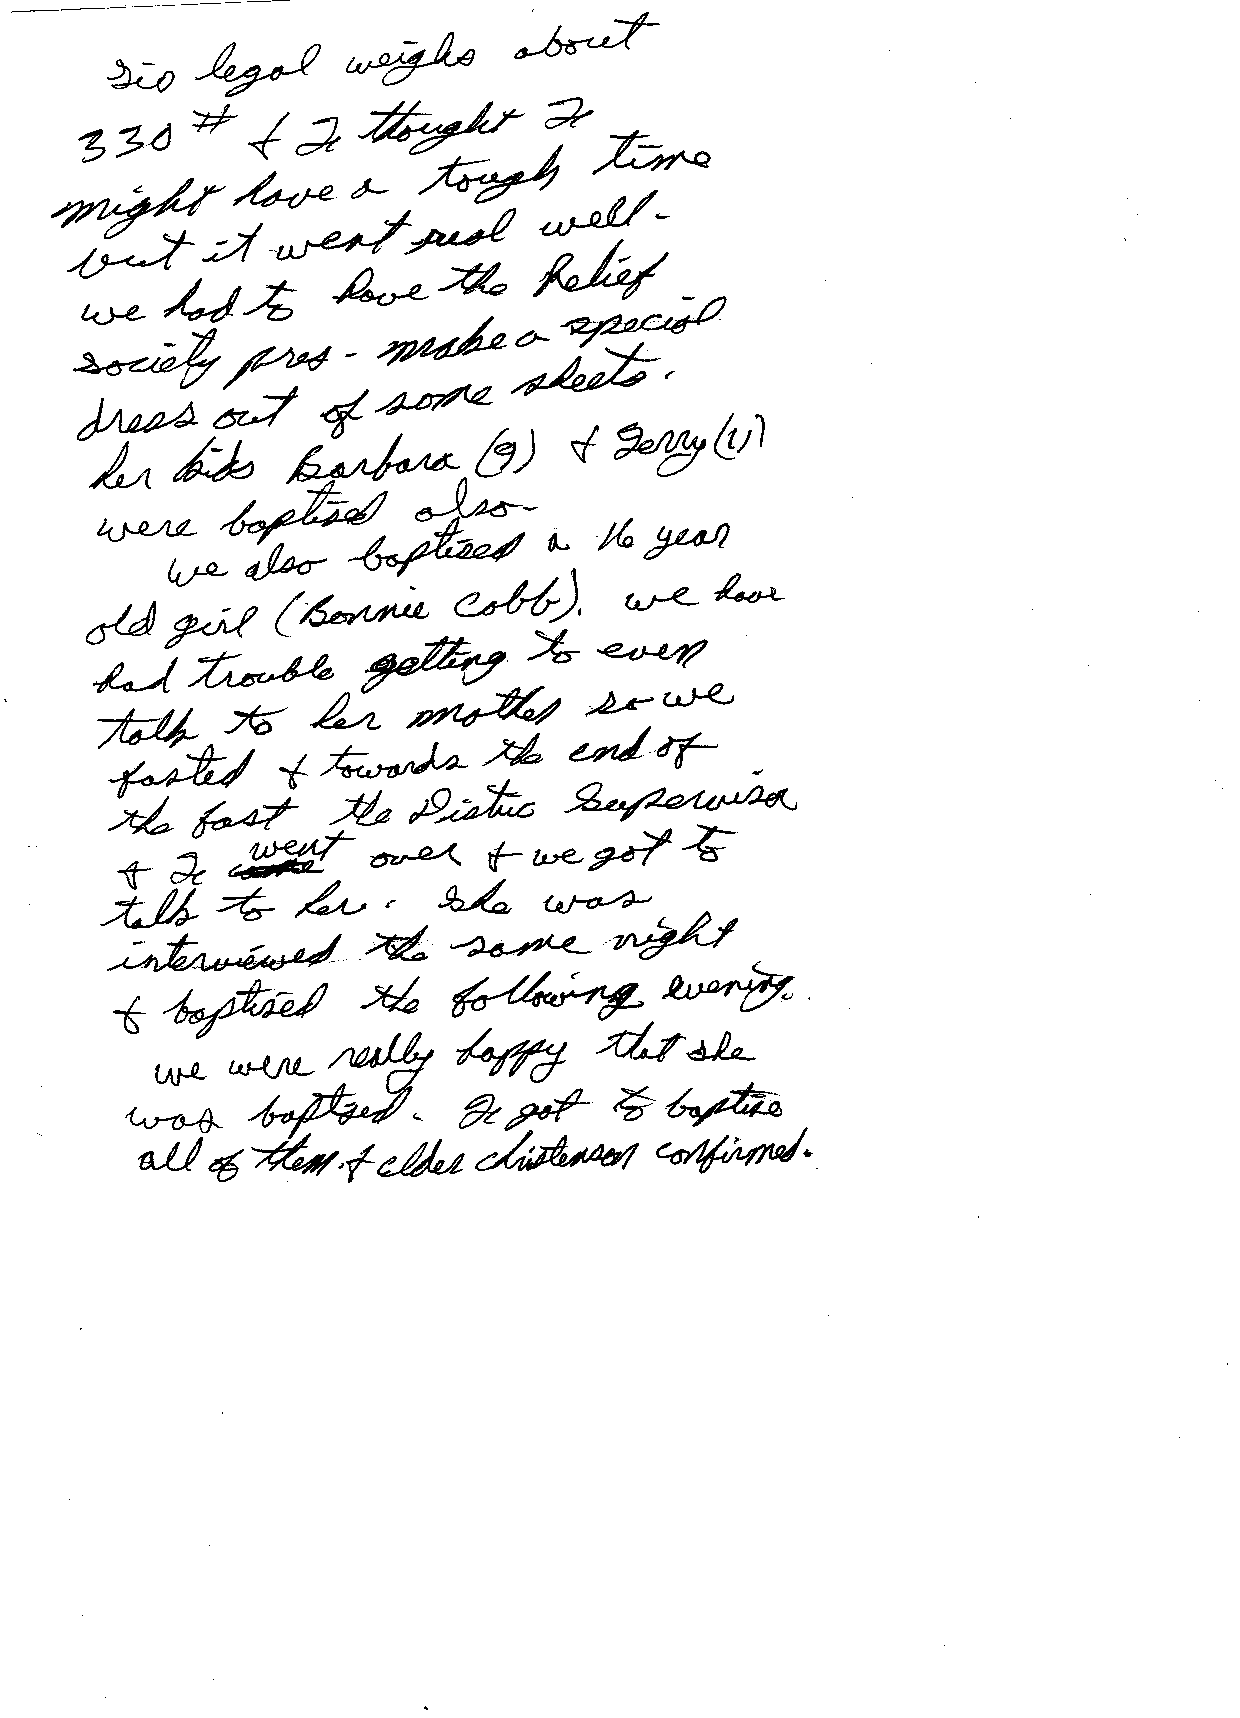 Sis legal weighs about
330 # & I thought I
might have a tough time
but it went real well-
we had to have the Relief
society pres - make a special
dress out of some sheets.
her kids Barbara (9) & Jerry (11)
were baptised also-
we also baptised a 16 year
old girl (Bonnie Cobb). we have
had trouble getting to even
talk to her mother so we
fasted & towards the end of
the fast the Distric Supervisor
& I went over & we got to
talk to her. She was
interviewed the same night
& baptised the following evening.
we were really happy that she
was baptized. I got to baptise
all of them & elder christenson confirmed.